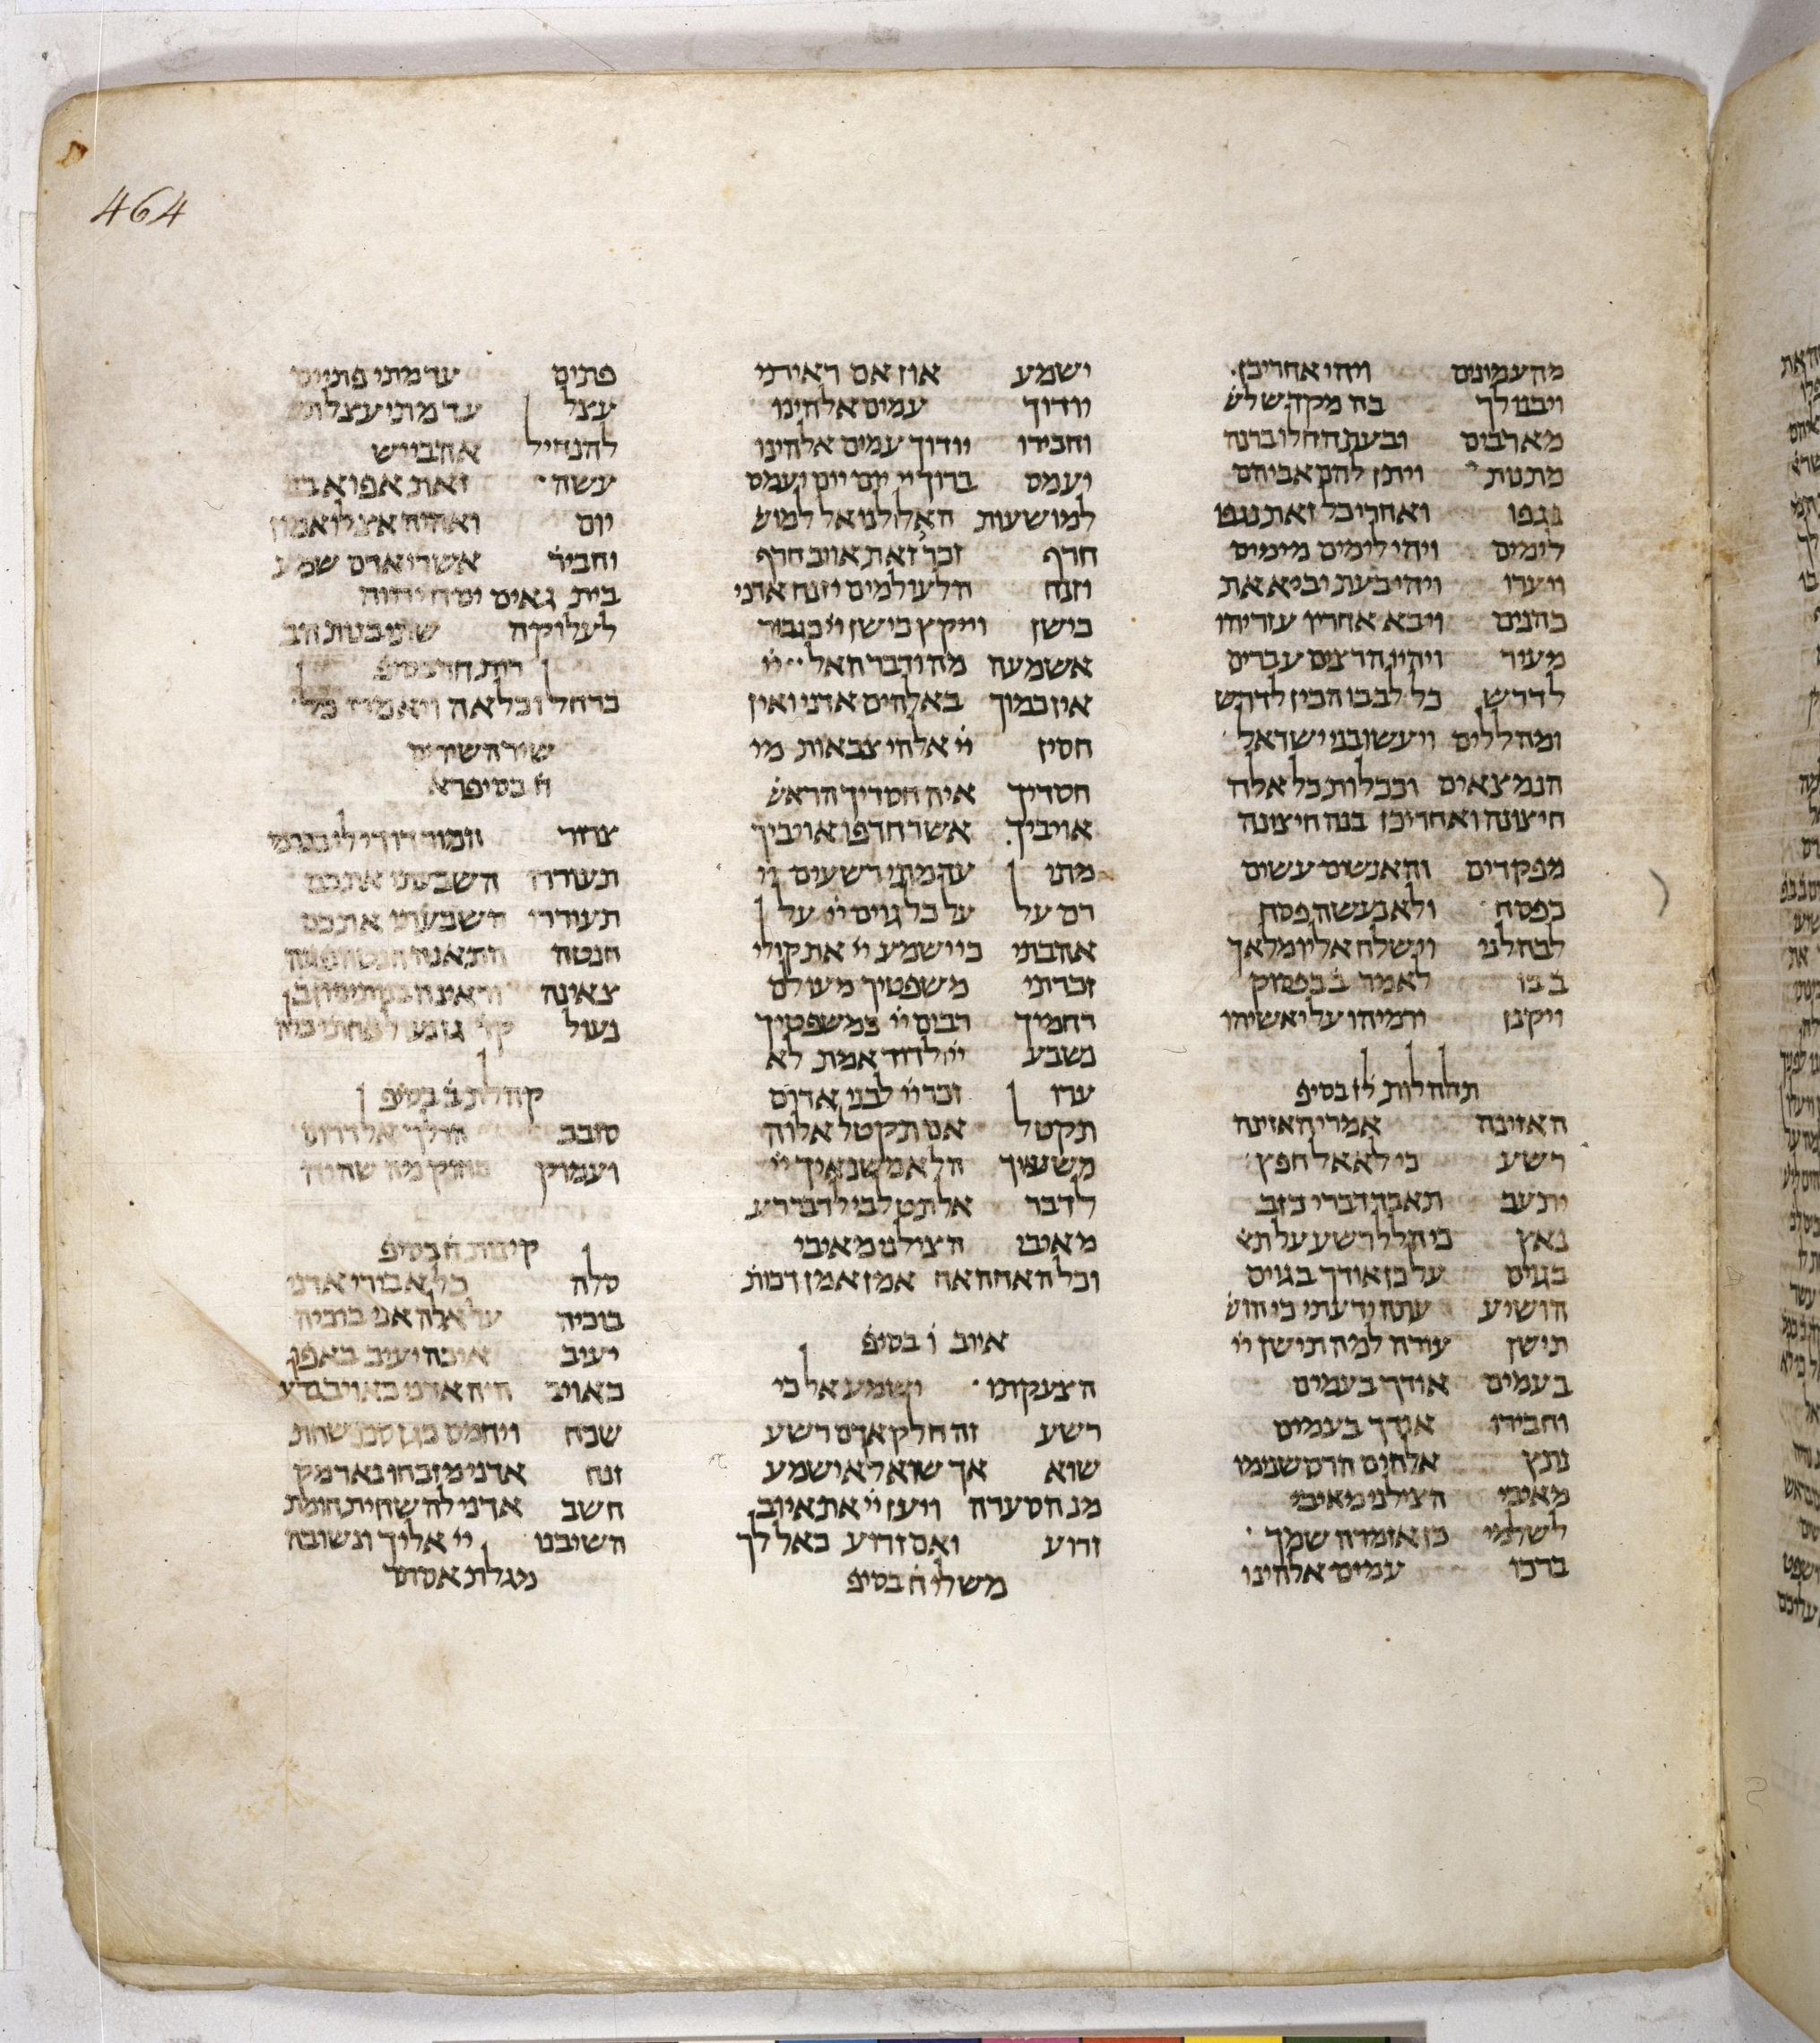 464
מהעמונים ויהי אחריכן
ויבנו לך בה מקדש לש
מארבים ובעת החלו ברנה
מתנות ויתן להם אביהם
נגפו ואחרי כל זאת נגפו
לימים ויהי לימים מימים
ויערו ויהי בעת יביא את
כהנים ויבא אחריו עזריהו
מעיר ויהיו הרצים עברים
לדרש כל לבבו הכין לדרש
ומהללים ויעשו בני ישראל
הנמצאים וככלות כל אלה
חיצונה ואחריכן בנה חיצונה
מפקדים והאנשים עשים
כפסח ולא נעשה פסח
לבהלני וישלח אליו מלאך
ב בו לאמר ב בפסוק
ויקנן ירמיהו על יאשיהו
תלהלות לז בסיפ
האזינה אמרי האזינה
רשע כי לא אל חפץ
יתעב תאבד דברי כזב
נאץ כי הלל רשע על תא
בגוים על כן אודך בגוים
הושיע עתה ידעתי כי הוש
תישן עורה למה תישן יי
בעמים אודך בעמים
וחבירו אודך בעמים
נתץ אלהים הרס שנימו
מאיבי הצילני מאיבי
לשלמי כן אזמרה שמך
ברכו עמים אלהינו
ישמע און אם ראיתי
יודוך עמים אלהינו
וחבירו יודוך עמים אלהינו
יעמס ברוך יי יום יום יעמס
למושעות האל לנו אל למוש
חרף זכר זאת אויב חרף
יזנח הלעולמים יזנח אדני
כישן ויקץ כישן יי כגבור
אשמעה מה ידבר האל יי
אין כמוך באלהים אדני ואין
חסין יי אלהי צבאות מי
חסדיך איה חסדיך הראש
אויביך אשר חרפו אויביך
מתי עד מתי רשעים יי
רם על על כל גוים יי על
אהבתי כי ישמע יי את קולי
זכרתי משפטיך מעולם
רחמיך רבים יי כמשפטיך
נשבע יי לדוד אמת לא
ערו זכר יי לבני אדום
תקטל אם תקטל אלוה
משנאיך הלא משנאיך יי
לדבר אל תט לבי לדבר רע
מאיבי הצילני מאיבי
וכל האחהאה אמן אמן דכות
איוב ו בסיפ
הצעקתו ישמע אל כי
רשע זה חלק אדם רשע
שוא אך שוא לא ישמע
מנ הסערה ויען יי את איוב
זרוע ואם זרוע כאל לך
משלי ח בסיפ
פתים עד מתי פתים
עצל עד מתי עצל
להנחיל אהבי יש
עשה זאת אפוא בני
יום ואהיה אצלו אמון
וחביר אשרי אדם שמע
בית גאים יסח יהוה
לעלוקה שתי בנות הב
רות חד בסיפ
כרחל וכלאה ויאמרו כל
שיר השירים
ח בסיפרא
צרור המור דודי לי
תעוררו השבעתי אתכם
תעוררו השבעתי אתכם
חנטה התאנה חנטה פגיה
צאינה וראינה בנות ציון
נעול גן נעול אחתי כלה
קהלת ב בסיפ
סובב הולך אל דרום
ועמוק רחוק מה שהיה
קינות ח בסיפ
סלה כל אבירי אדני
בוכיה על אלה אני בוכיה
יעיב איכה יעיב באפו
כאויב היה אדני כאויב בלע
שכח ויחמס כגן סכו שחת
זנח אדני מזבחו נאר מק
חשב אדני להשחית חומת
השיבנו יי אליך ונשובה
מגלת אסתר